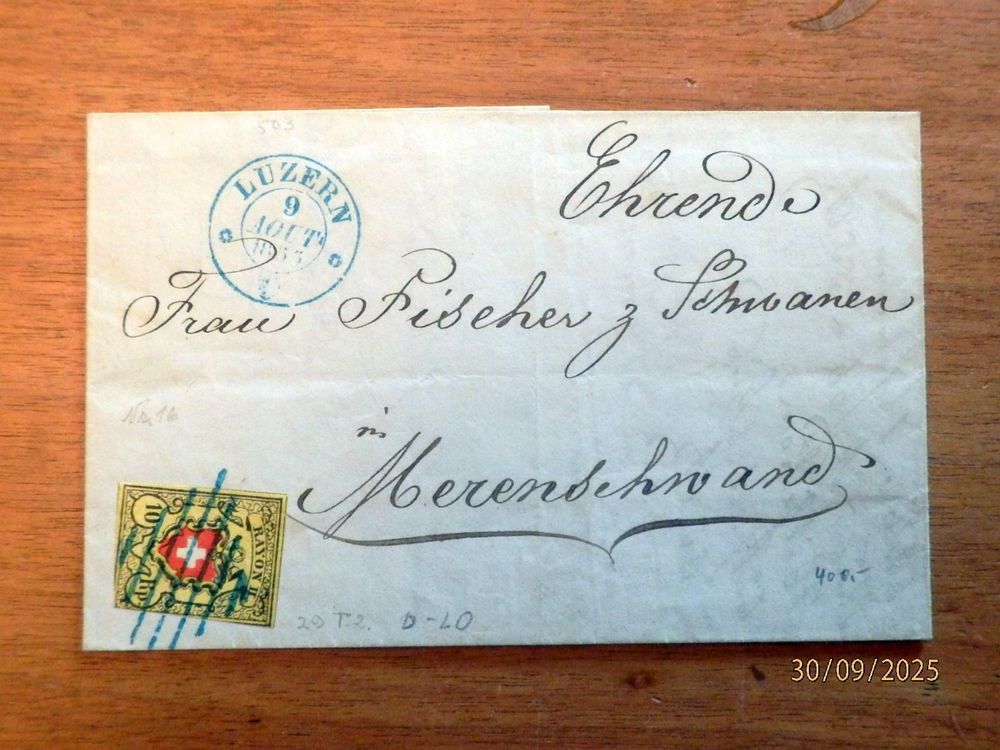 503
LUZERN
9
AOUT
1853
Ehrende
Frau Fischer z Schwanen
in
Merenschwand
No. 16
10 Rp.
RAYON II
400.-
29 T2. D-LO
30/09/2025